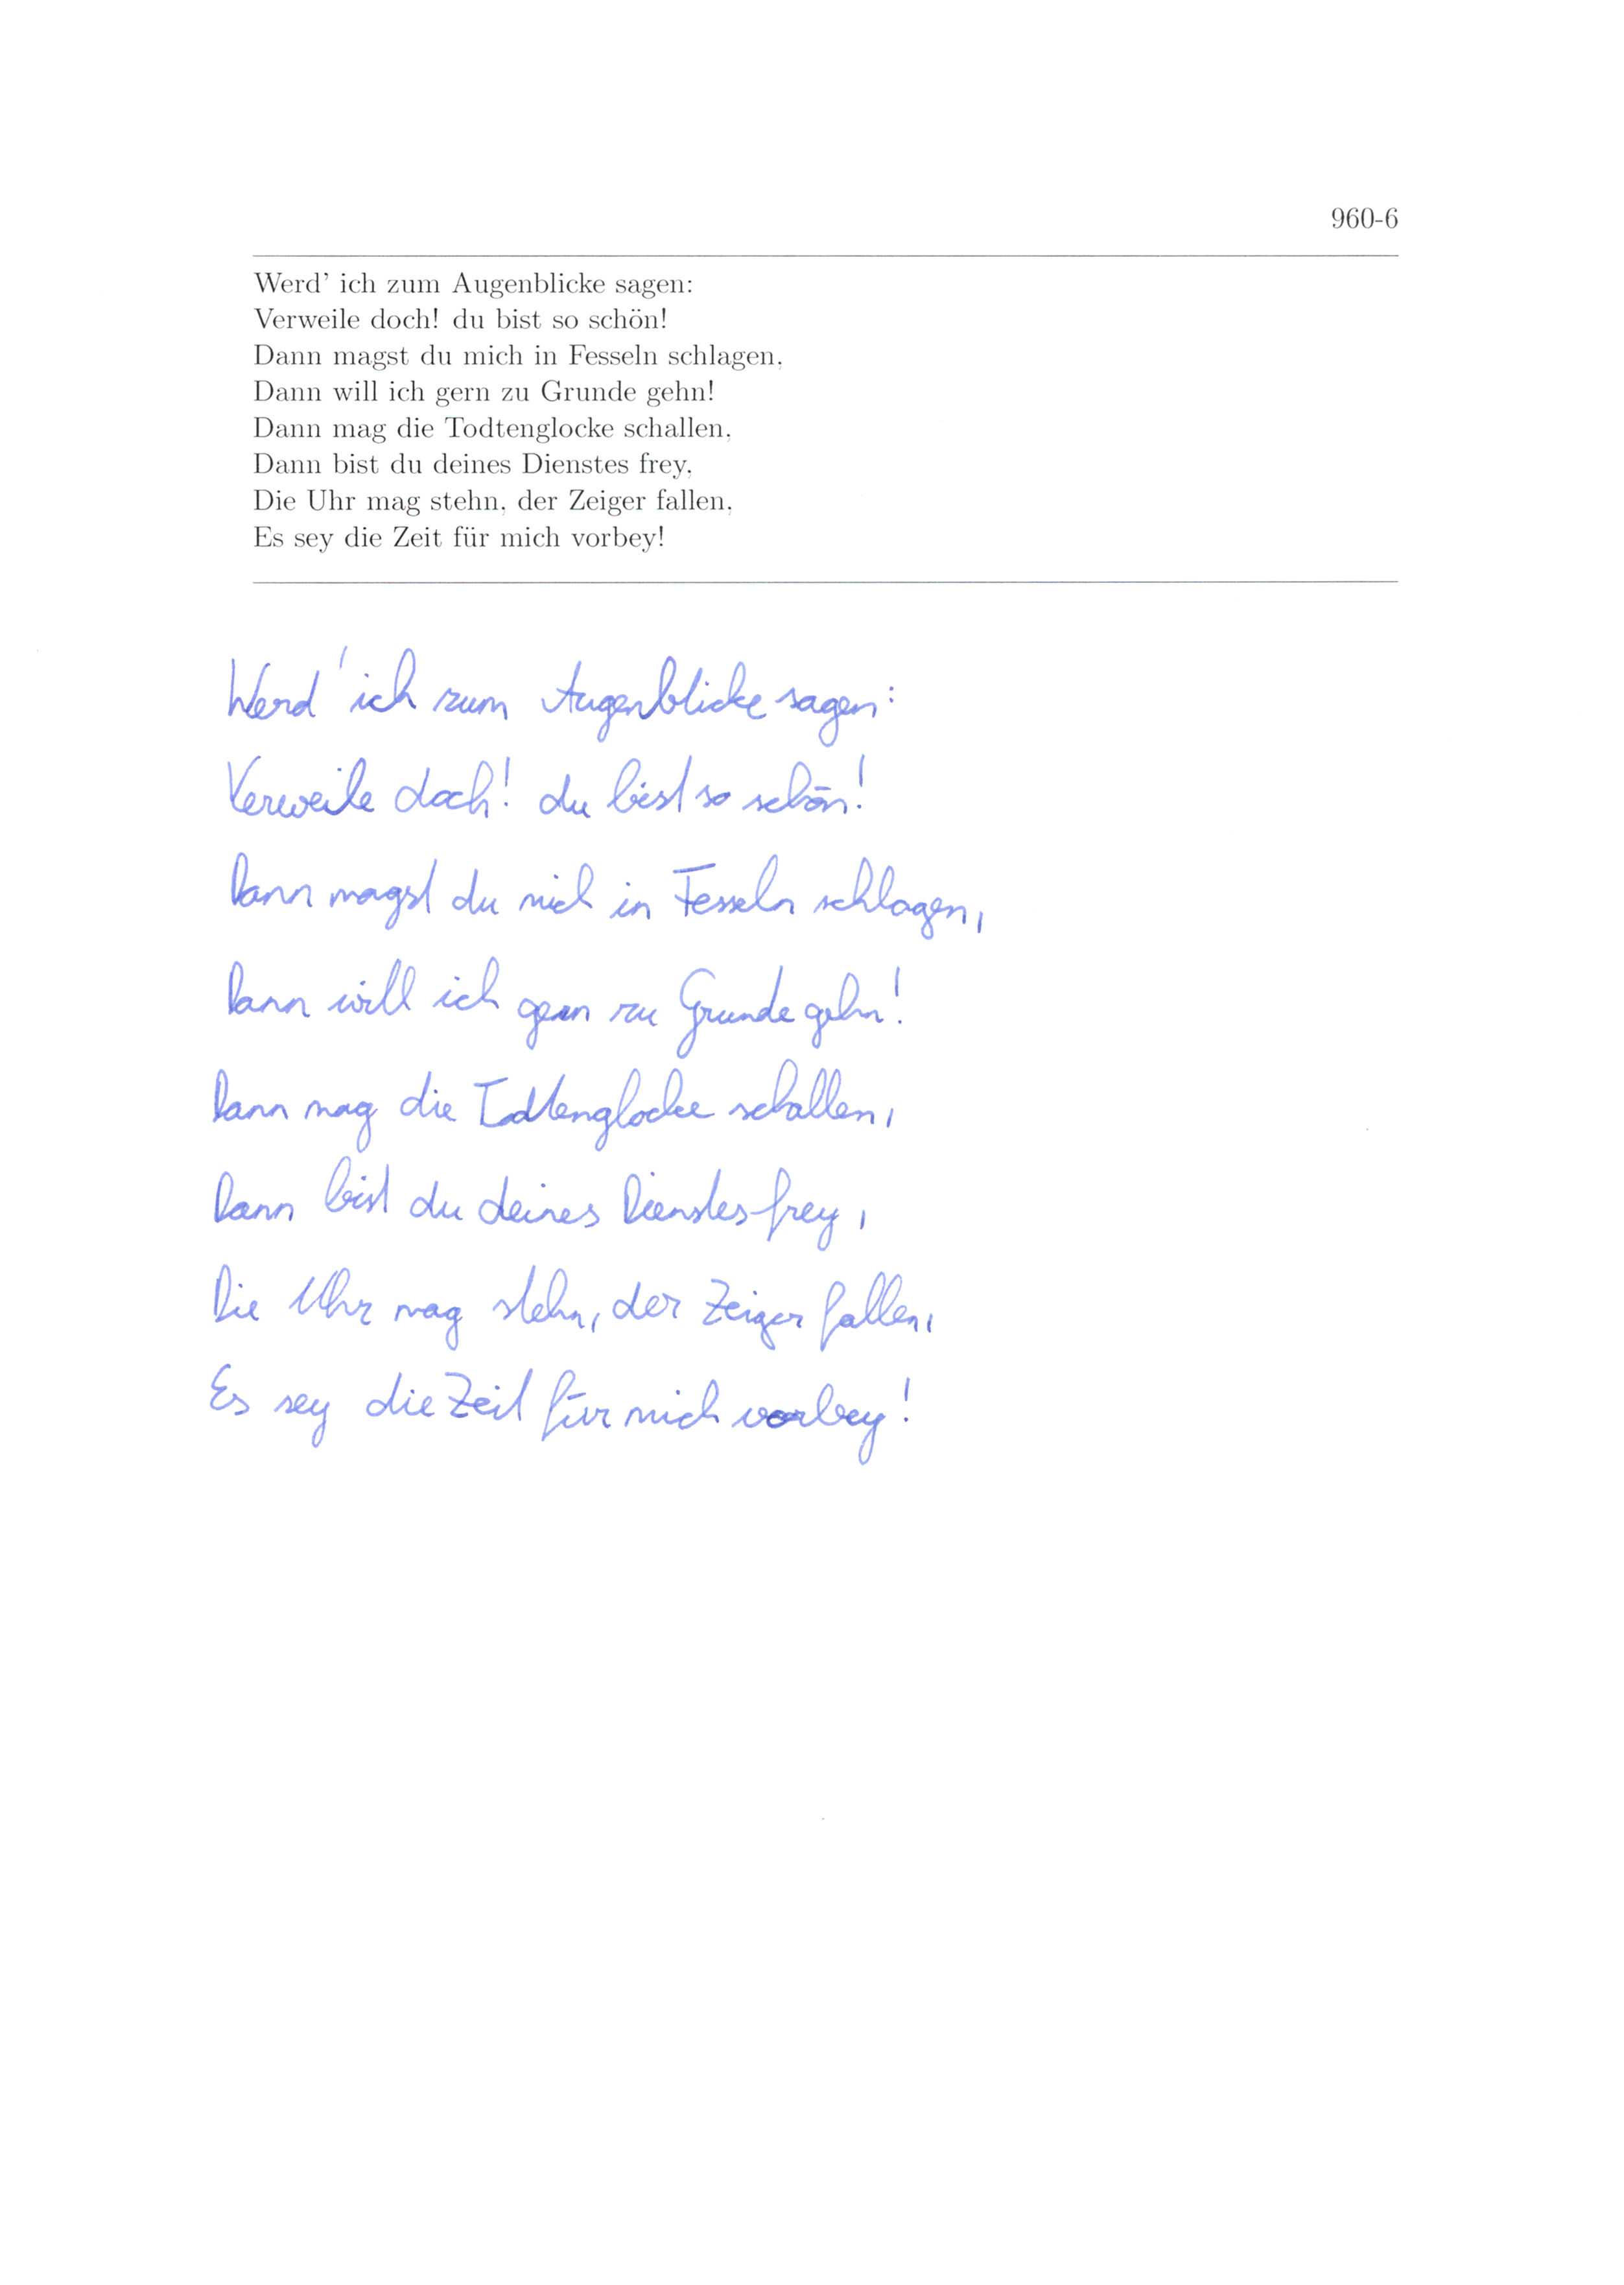 960-6
Werd' ich zum Augenblicke sagen:
Verweile doch! du bist so schön!
Dann magst du mich in Fesseln schlagen,
Dann will ich gern zu Grunde gehn!
Dann mag die Todtenglocke schallen,
Dann bist du deines Dienstes frey,
Die Uhr mag stehn, der Zeiger fallen,
Es sey die Zeit für mich vorbey!
Werd' ich zum Augenblicke sagen:
Verweile doch! du bist so schön!
Dann magst du mich in Fesseln schlagen,
Dann will ich gern zu Grunde gehn!
Dann mag die Todtenglocke schallen,
Dann bist du deines Dienstes frey,
Die Uhr mag stehn, der Zeiger fallen,
Es sey die Zeit für mich vorbey!